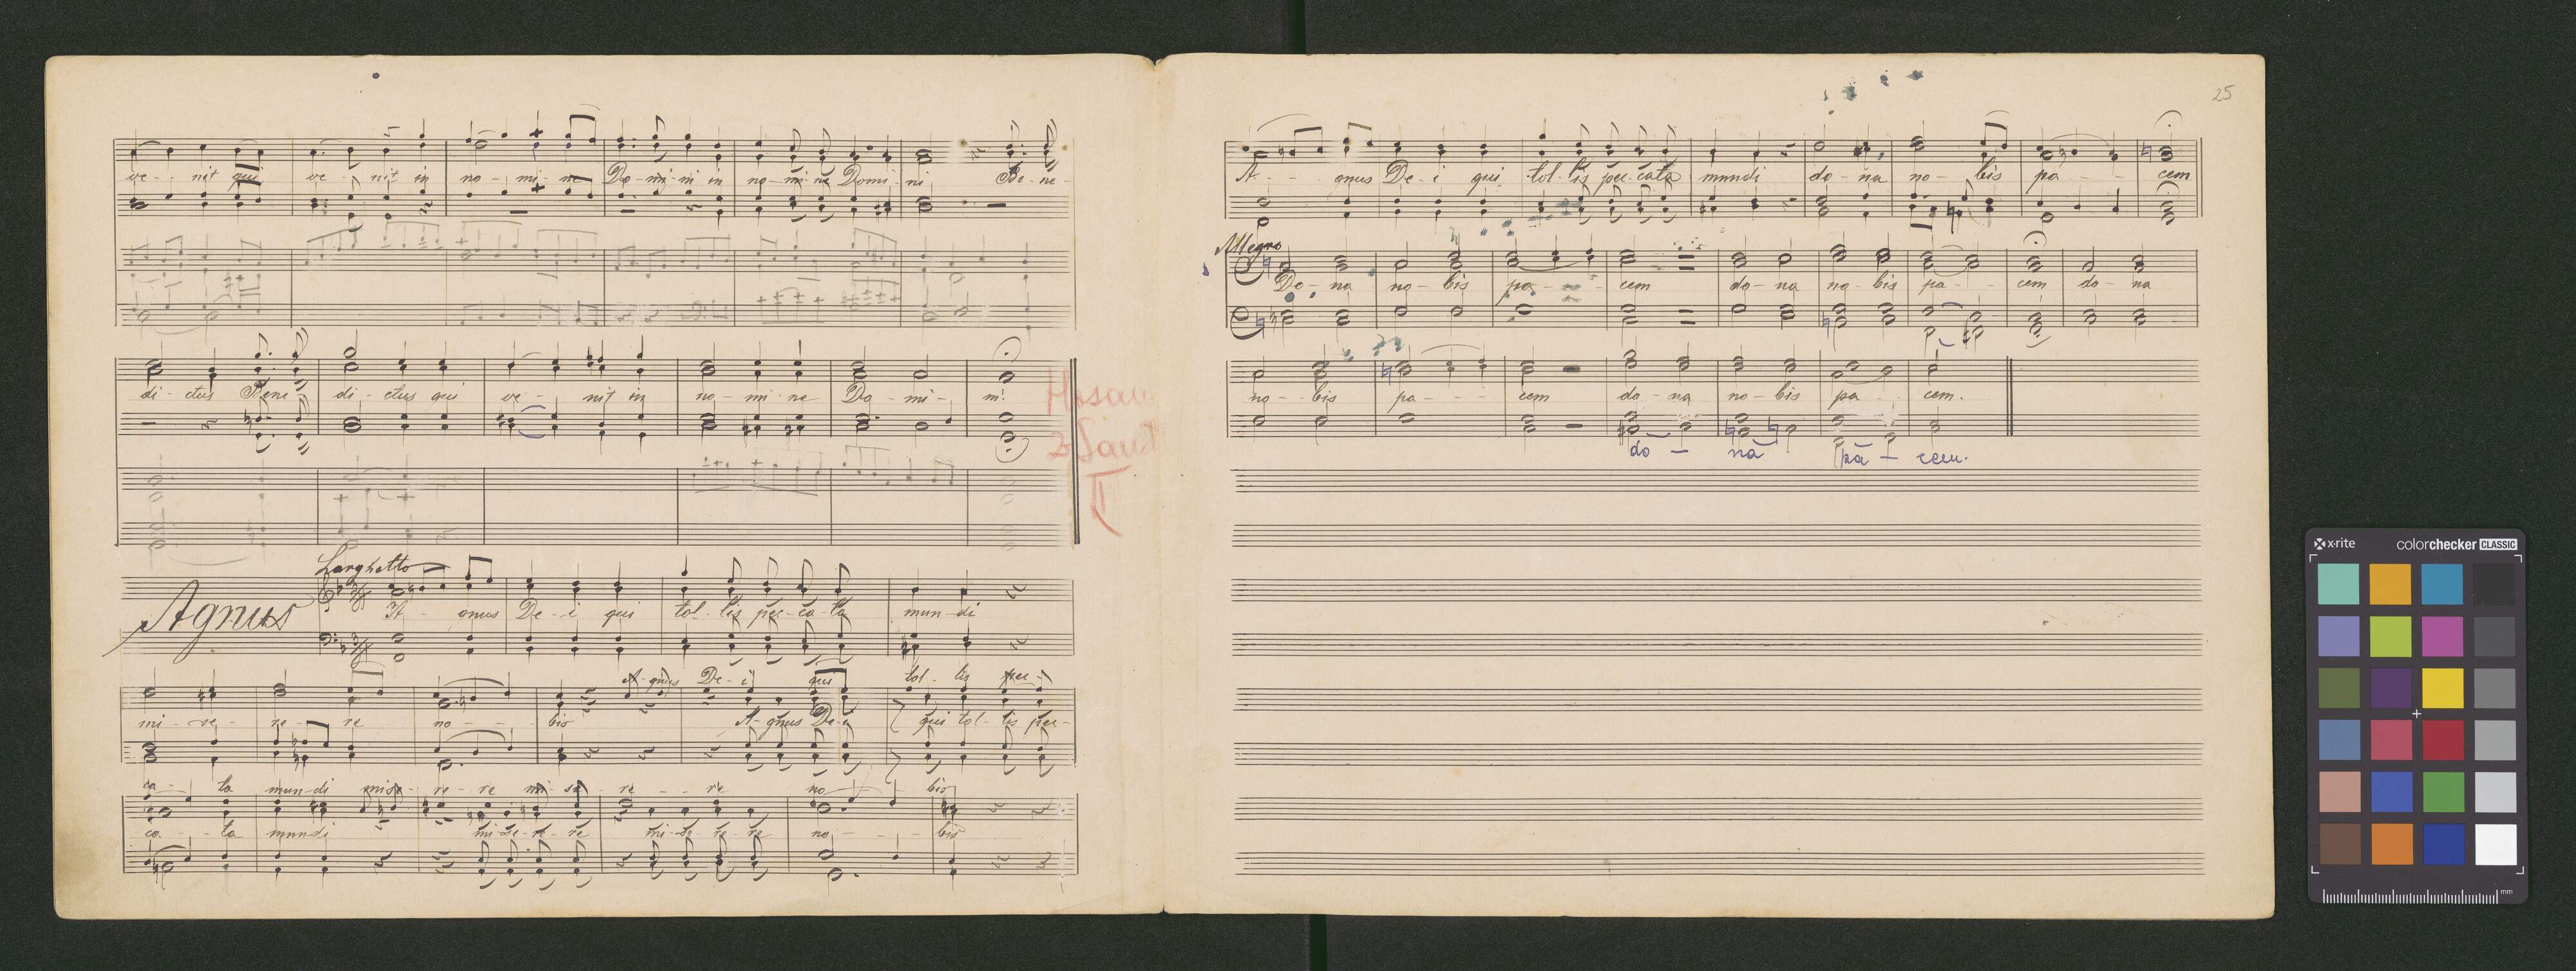 ve - nit qui ve - nit in no - mi - ne Do - mi - ni in no - mi - ne Domi - ni Be - ne -
di - ctus Bene di - ctus qui ve - nit in no - mi - ne Do - mi - ni.
Hosan
z Sanct
II
Larghetto
Agnus
A - gnus De - i qui tol - lis pec - ca - ta mun - di
A - gnus De - i qui tol - lis pec -
mi - se - re - re no - - - bis A - gnus De - i qui tol - lis pec -
ca - ta mun - di mise - re - re mi - se - re - - re no bis
ca - - ta mundi mi - se - re - re mi - se - re - re no - - - bis
25
A - - gnus De - i qui tol - lis pec - cata mundi do - na no - bis pa - - - cem
Allegro
Do - na no - bis pa - - - cem do - na no - bis pa - - cem do - na
no - bis pa - - - cem do - na no - bis pa - cem.
do - na pa - cem.
x-rite colorchecker CLASSIC
mm